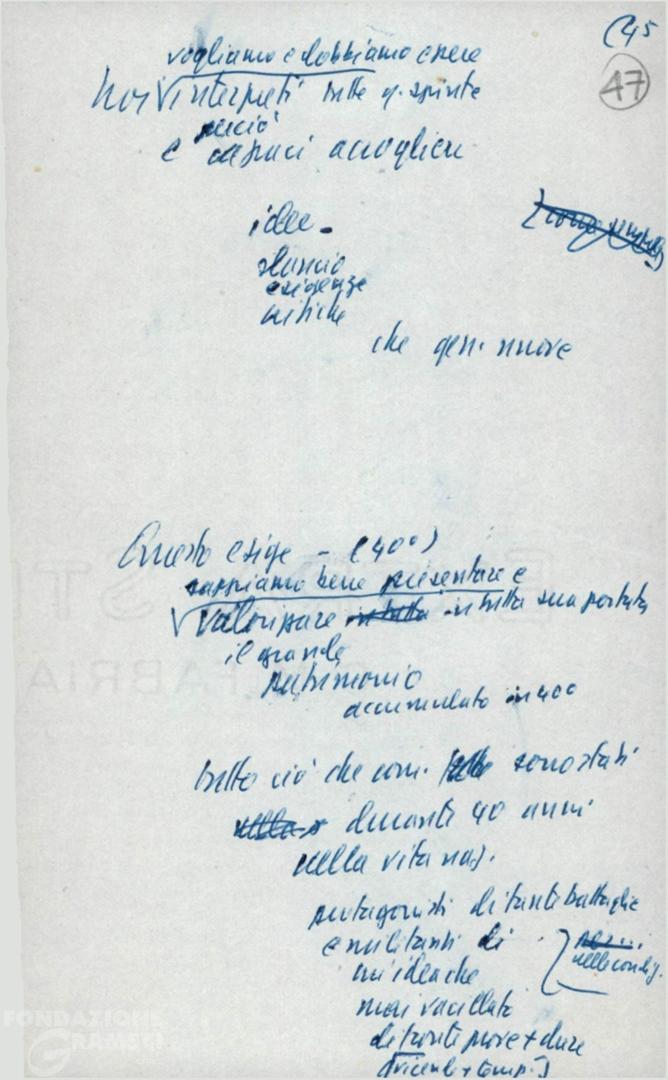 (45
47
vogliamo e dobbiamo essere
noi interpreti tutte q. spinte
perciò
e capaci accogliere
idee -
slancio
esigenze
critiche
che gen. nuove
Questo esige - (40°)
sappiamo bene presentare e
valorizzare in tutta in tutta sua portata
il grande
patrimonio
accumulato in 40°
tutto ciò che com. sono stati
nella durante 40 anni
nella vita naz.
protagonisti di tante battaglie
e militanti di
un'idea che nelle condiz.
mai vacillato
di fronte prove + dure
FONDAZIONE
GRAMSCI